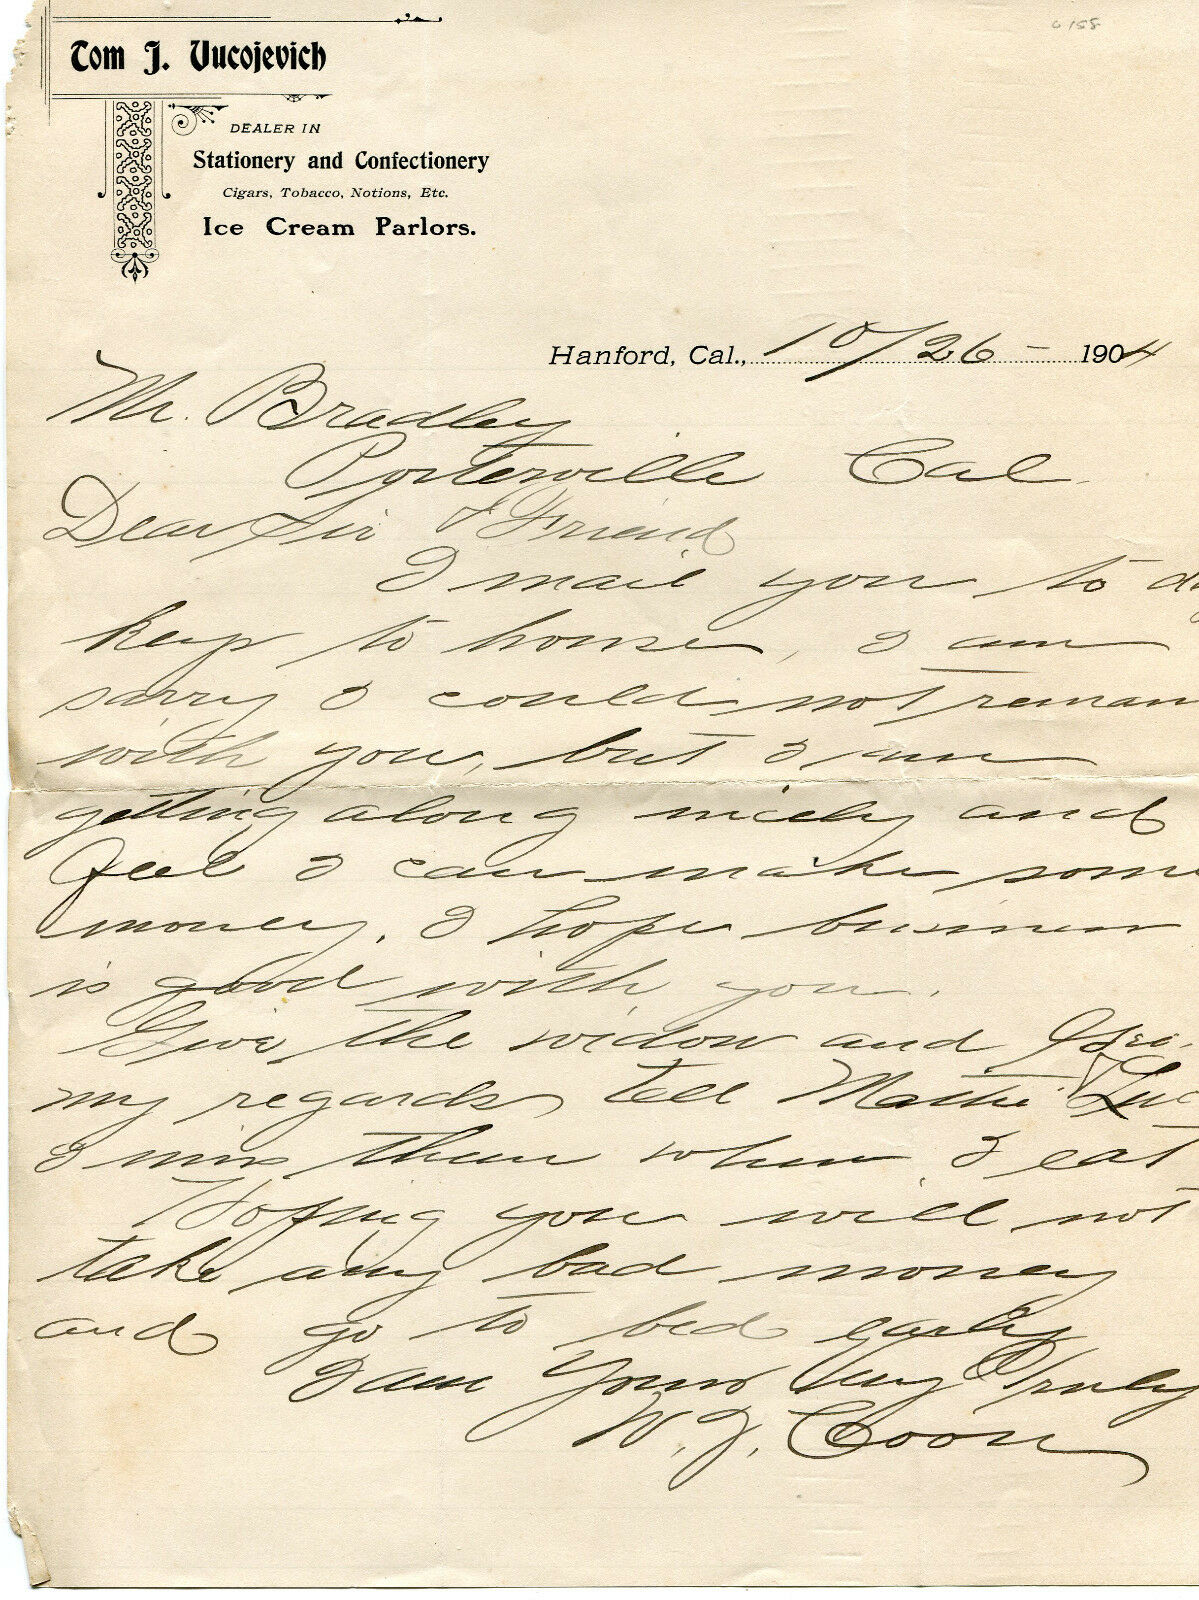 6 155
Tom J. Vucojevich
DEALER IN
Stationery and Confectionery
Cigars, Tobacco, Notions, Etc.
Ice Cream Parlors.
Hanford, Cal., 10/26 - 1904
Mr. Bradley
Porterville Cal.
Dear Sir & Friend
I mail you to
keys to house, I am
sorry I could not reman
with you, but I am
getting along nicely and
feel I can make some
money. I hope business
is good with you.
Give the widow and
my regards tell Mattie
I miss them when I eat
Hoping you will not
take any bad money
and go to bed early
I am Yours Very Truly
W. J. Coon